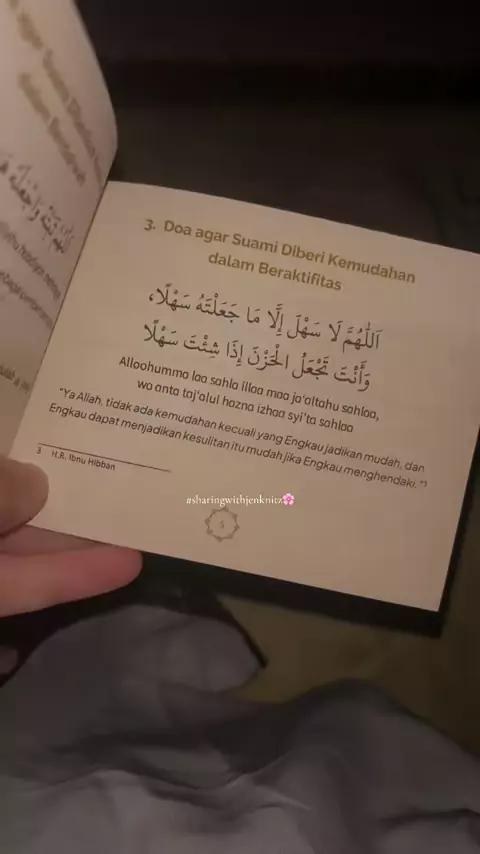 agar Suami Diberi
dalam
3. Doa agar Suami Diberi Kemudahan
dalam Beraktifitas
اَللّٰهُمَّ لَا سَهْلَ إِلَّا مَا جَعَلْتَهُ سَهْلًا،
وَأَنْتَ تَجْعَلُ الْحَزْنَ إِذَا شِئْتَ سَهْلًا
Alloohumma laa sahla illaa maa ja'altahu sahlaa,
wa anta taj'alul hazna izhaa syi'ta sahlaa
"Ya Allah, tidak ada kemudahan kecuali yang Engkau jadikan mudah, dan
Engkau dapat menjadikan kesulitan itu mudah jika Engkau menghendaki."³
3 H.R. Ibnu Hibban
#sharingwithjenknitz🌸
5